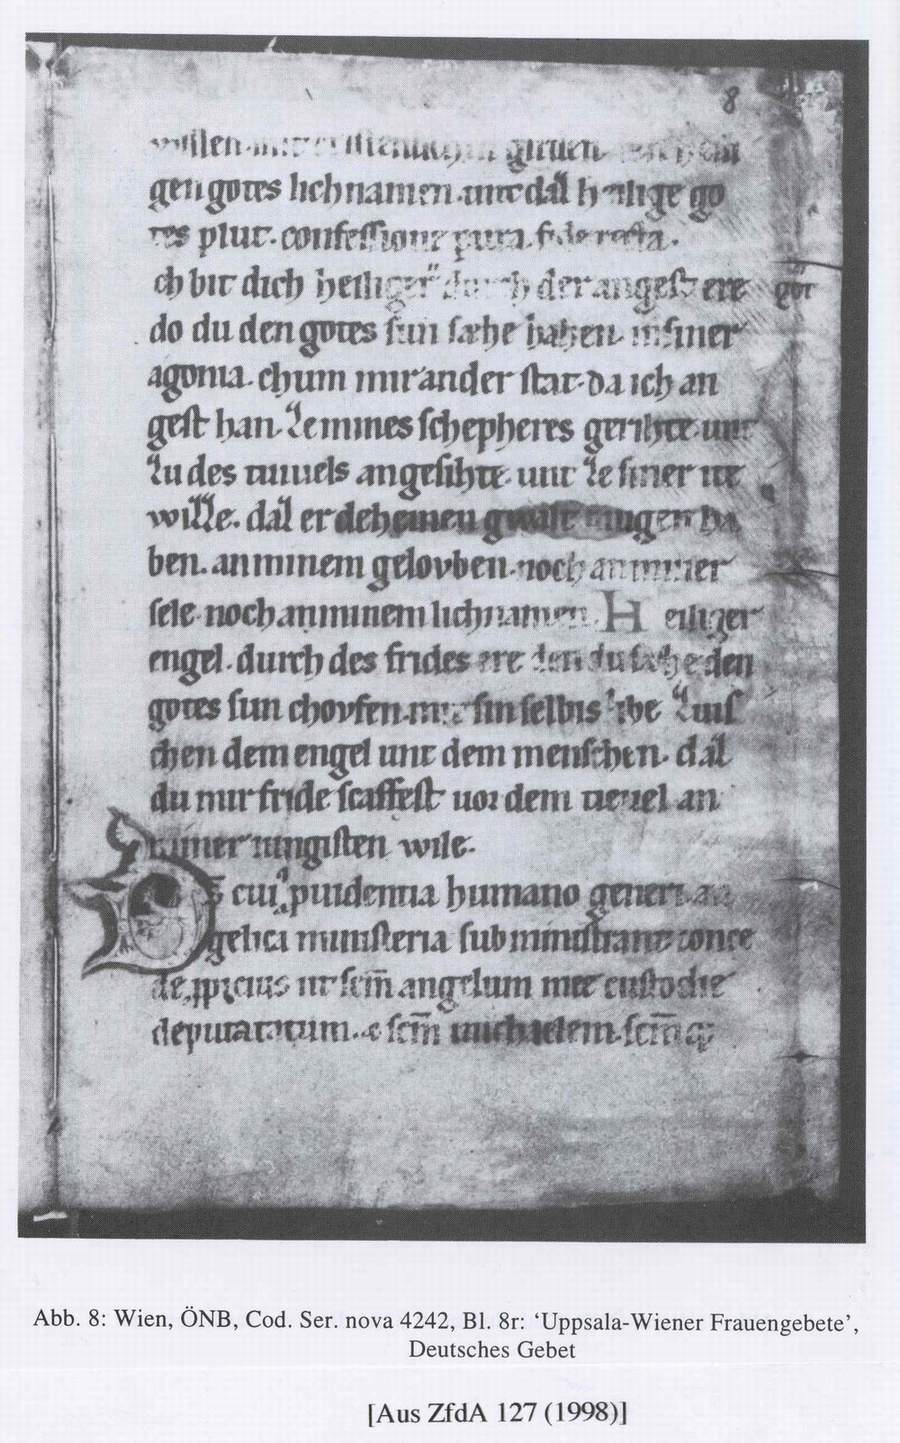 8
gen gotes lichnamen. unt daz heilige go
tes plut. confessione pura. fide recta.
ch bit dich heiliger durch der angest ere got
do du den gotes sun sæhe haben. in siner
agonia. chum mir ander stat. da ich an
gest han. ze mines schepheres gerihte. unt
zu des tiuuels angesihte. unt ze siner ue
wizze. daz er deheinen gwalt mugen ha
ben. an minem gelovben. noch an miner
sele. noch an minem lichnamen. Heiliger
engel. durch des frides ere den du sæhe den
gotes sun chovfen. mit sin selbis libe zuis
chen dem engel unt dem menschen. daz
du mir fride scaffest uor dem tieuel an
miner iungisten wile.
Ds̄ cui' puidentia humano generi. an
gelica ministeria subministrant. conce
de ꝓpicius ut scm̄ angelum mee custodie
deputatum. & scm̄ michaelem. scm̄ q;
Abb. 8: Wien, ÖNB, Cod. Ser. nova 4242, Bl. 8r: ‘Uppsala-Wiener Frauengebete’,
Deutsches Gebet
[Aus ZfdA 127 (1998)]